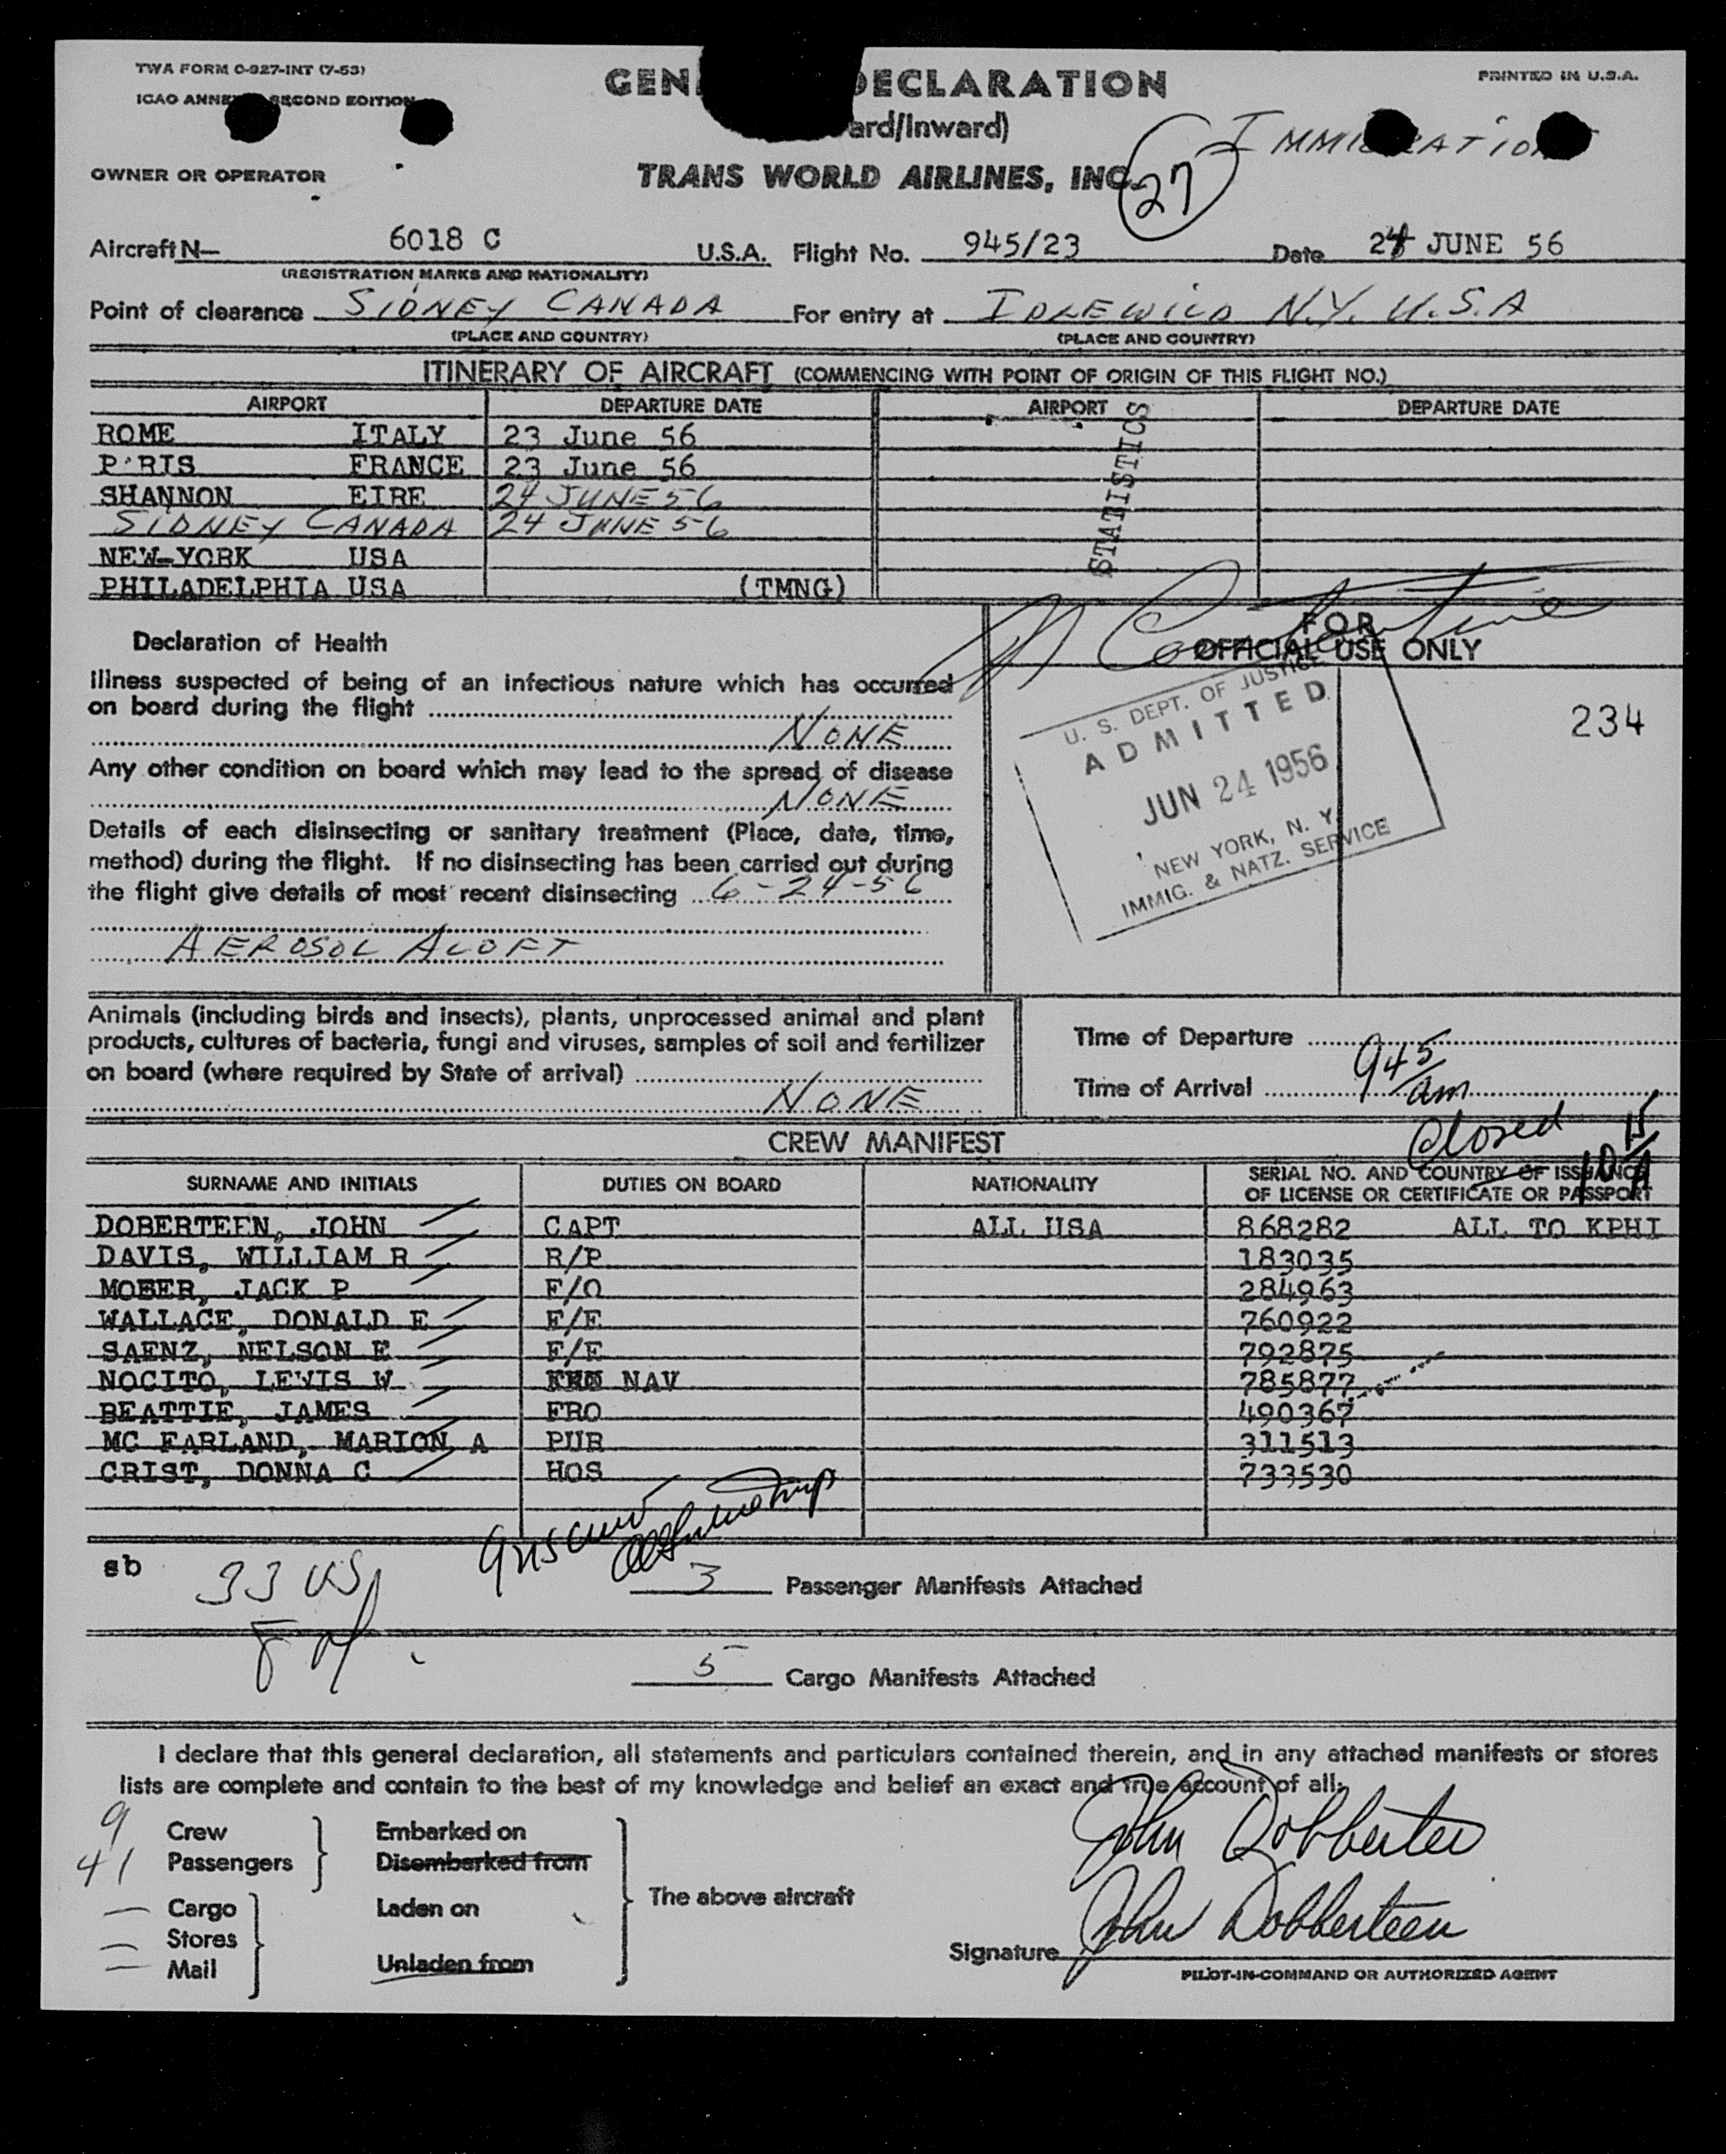 TWA FORM O-927-INT (7-53)
PRINTED IN U.S.A.
ICAO ANNEX SECOND EDITION
GEN DECLARATION
ard/Inward)
27
OWNER OR OPERATOR
TRANS WORLD AIRLINES, INC.
Aircraft N— 6018 C U.S.A. Flight No. 945/23 Date 24 JUNE 56
(REGISTRATION MARKS AND NATIONALITY)
Point of clearance SIDNEY CANADA For entry at IDLEWILD N.Y. U.S.A
(PLACE AND COUNTRY) (PLACE AND COUNTRY)
ITINERARY OF AIRCRAFT (COMMENCING WITH POINT OF ORIGIN OF THIS FLIGHT NO.)
AIRPORT DEPARTURE DATE AIRPORT DEPARTURE DATE
ROME ITALY 23 June 56
P'RIS FRANCE 23 June 56
SHANNON EIRE 24 JUNE 56
SIDNEY CANADA 24 JUNE 56
NEW-YORK USA
PHILADELPHIA USA (TMNG)
STATISTICS
Declaration of Health
FOR
OFFICIAL USE ONLY
Illness suspected of being of an infectious nature which has occurred
on board during the flight
NONE
Any other condition on board which may lead to the spread of disease
NONE
Details of each disinsecting or sanitary treatment (Place, date, time,
method) during the flight. If no disinsecting has been carried out during
the flight give details of most recent disinsecting 6-24-56
AEROSOL ALOFT
U. S. DEPT. OF JUSTICE
ADMITTED
JUN 24 1956
NEW YORK, N. Y.
IMMIG. & NATZ. SERVICE
234
Animals (including birds and insects), plants, unprocessed animal and plant
products, cultures of bacteria, fungi and viruses, samples of soil and fertilizer
on board (where required by State of arrival)
NONE
Time of Departure
Time of Arrival 945 am
Closed
CREW MANIFEST
SURNAME AND INITIALS DUTIES ON BOARD NATIONALITY SERIAL NO. AND COUNTRY OF ISSUANCE
OF LICENSE OR CERTIFICATE OR PASSPORT
DOBERTEEN, JOHN CAPT ALL USA 868282 ALL TO KPHI
DAVIS, WILLIAM R R/P 183035
MOBER, JACK P F/O 284963
WALLACE, DONALD E F/E 760922
SAENZ, NELSON E F/E 792875
NOCITO, LEWIS W NAV 785877
BEATTIE, JAMES FRO 490367
MC FARLAND, MARION A PUR 311513
CRIST, DONNA C HOS 733530
sb
33 US
3 Passenger Manifests Attached
5 Cargo Manifests Attached
I declare that this general declaration, all statements and particulars contained therein, and in any attached manifests or stores
lists are complete and contain to the best of my knowledge and belief an exact and true account of all:
9 Crew
41 Passengers
Embarked on
Disembarked from
Cargo
Stores
Mail
Laden on
Unladen from
The above aircraft
John Dobberteen
John Dobberteen
Signature
PILOT-IN-COMMAND OR AUTHORIZED AGENT